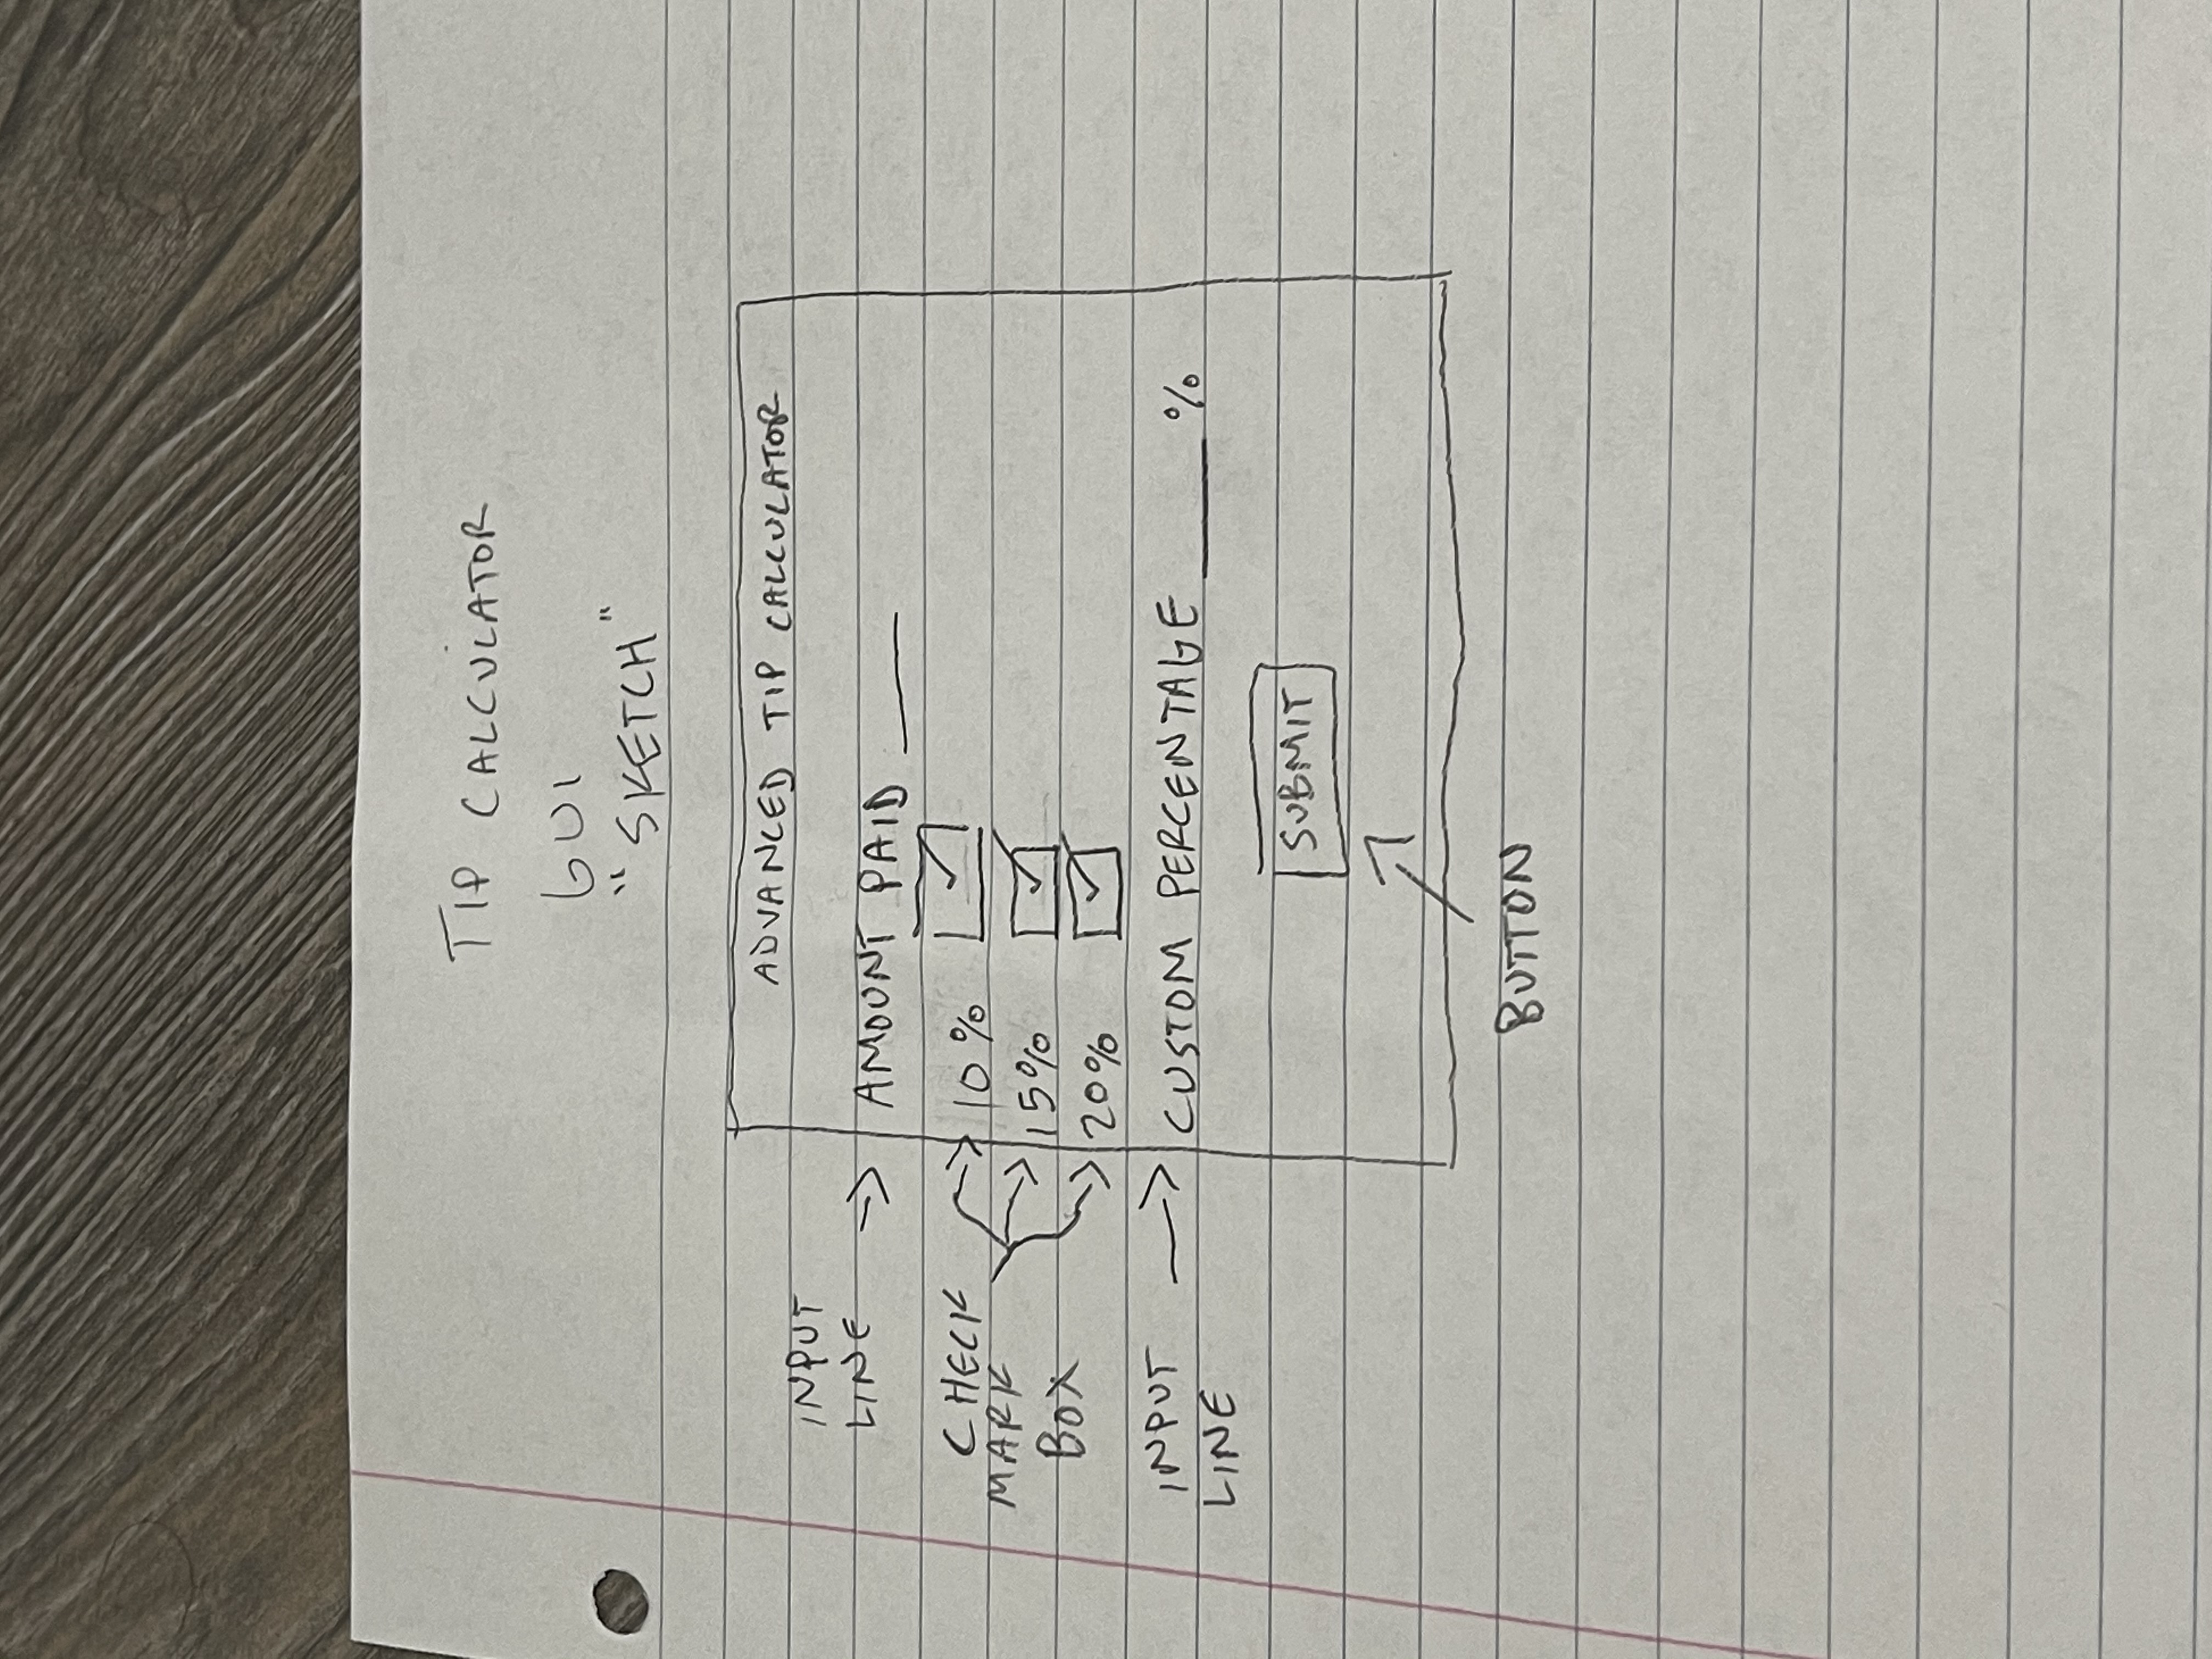 TIP CALCULATOR
GUI
"SKETCH"
ADVANCED TIP CALCULATOR
INPUT
LINE
AMOUNT PAID
CHECK
MARK
BOX
10%
15%
20%
INPUT
LINE
CUSTOM PERCENTAGE ____ %
SUBMIT
BUTTON